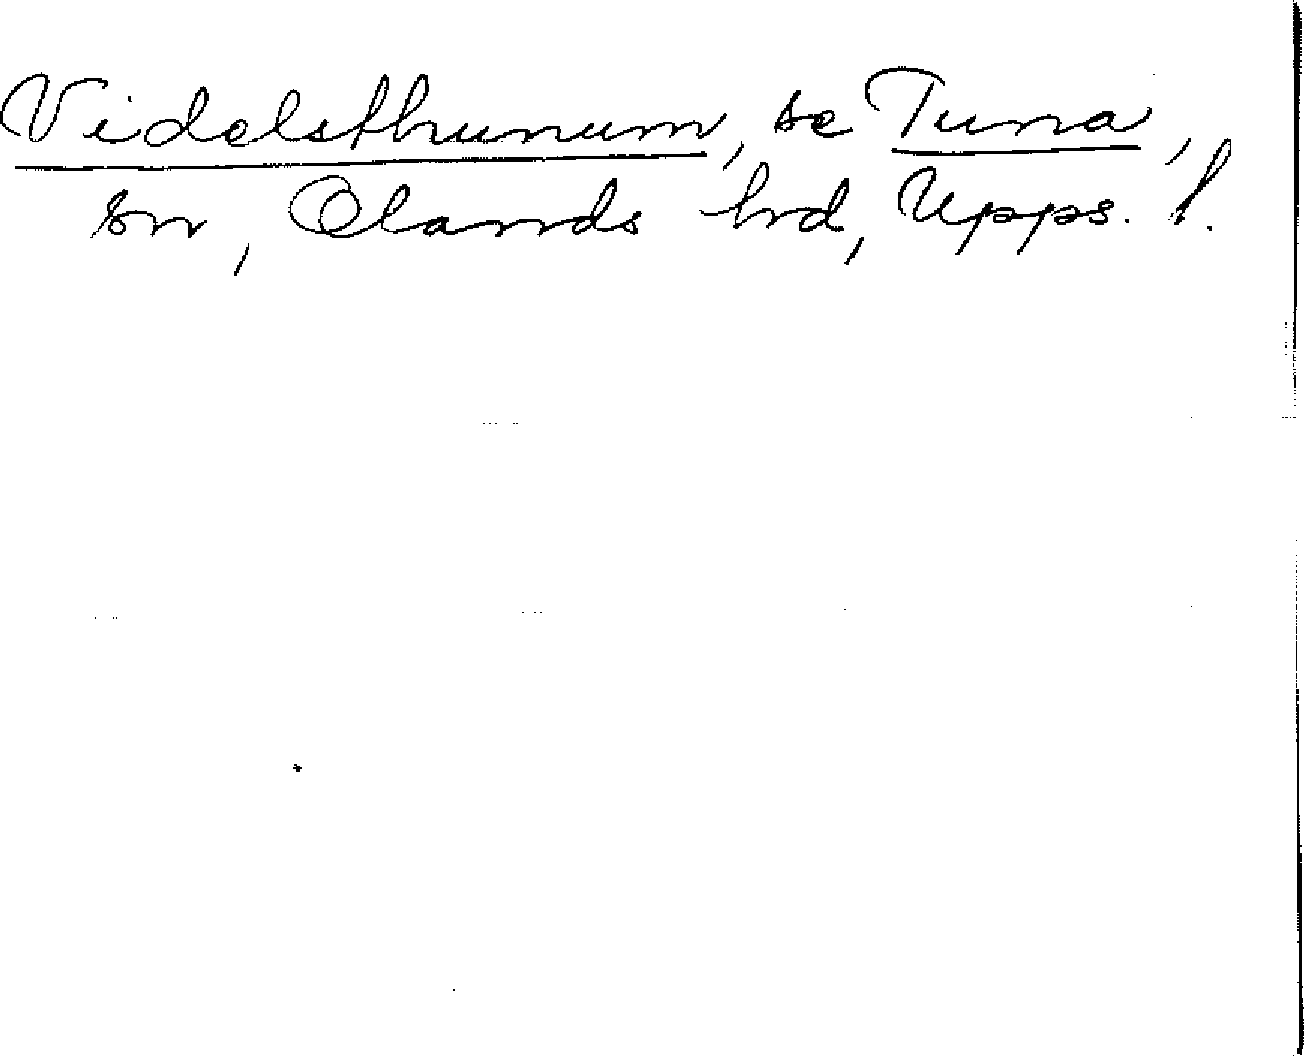 Videlsthunum, se Tuna,
sn, Olands hrd, Upps. l.